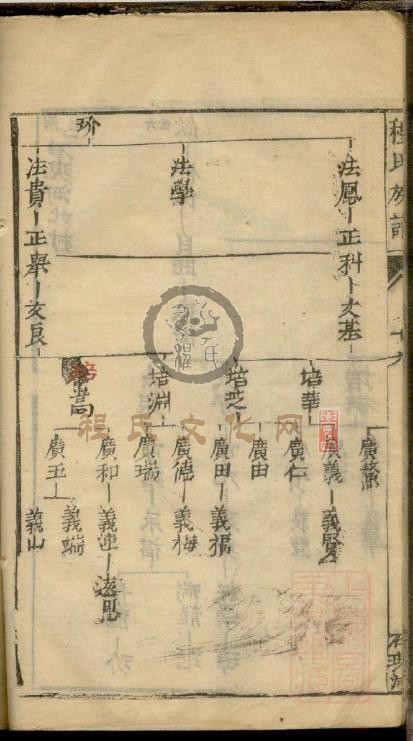 程氏族譜
法鳳 正科 文基
法學
玠
法貴 正舉 文良
培華
培芝
培淵
培嵩
廣鰲
廣義 義賢
廣仁
廣由
廣田 義福
廣德 義梅
廣瑞
廣和 義連
廣玉 義端
義山
程氏文化网